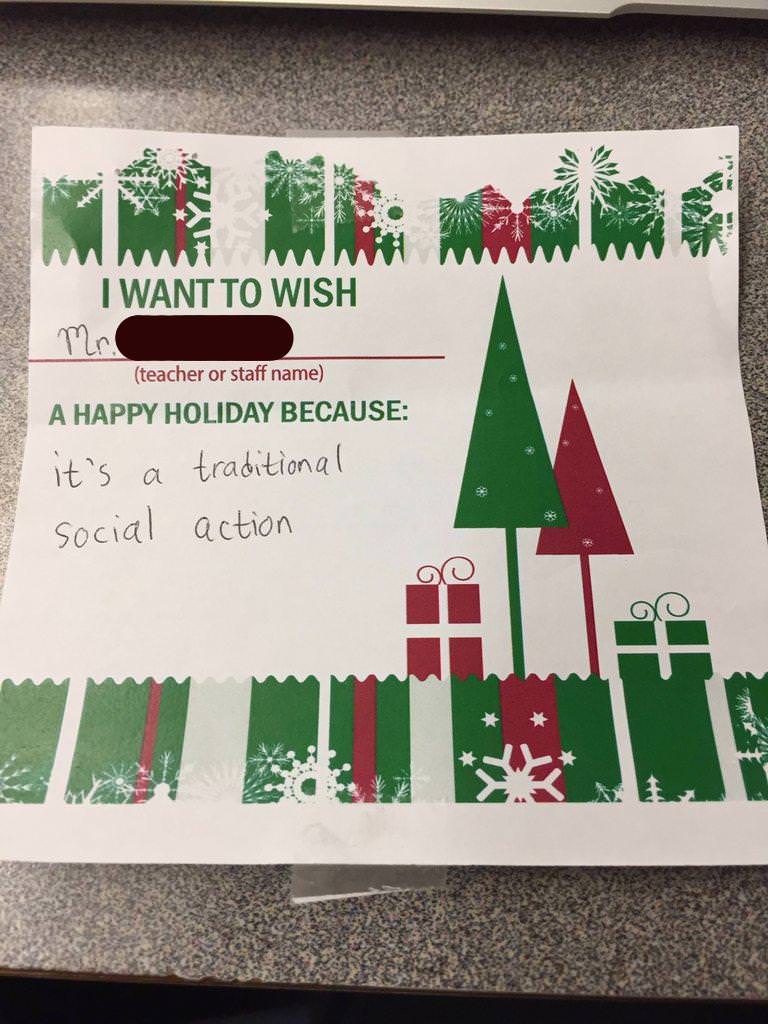 I WANT TO WISH
Mr.
(teacher or staff name)
A HAPPY HOLIDAY BECAUSE:
it's a traditional
social action